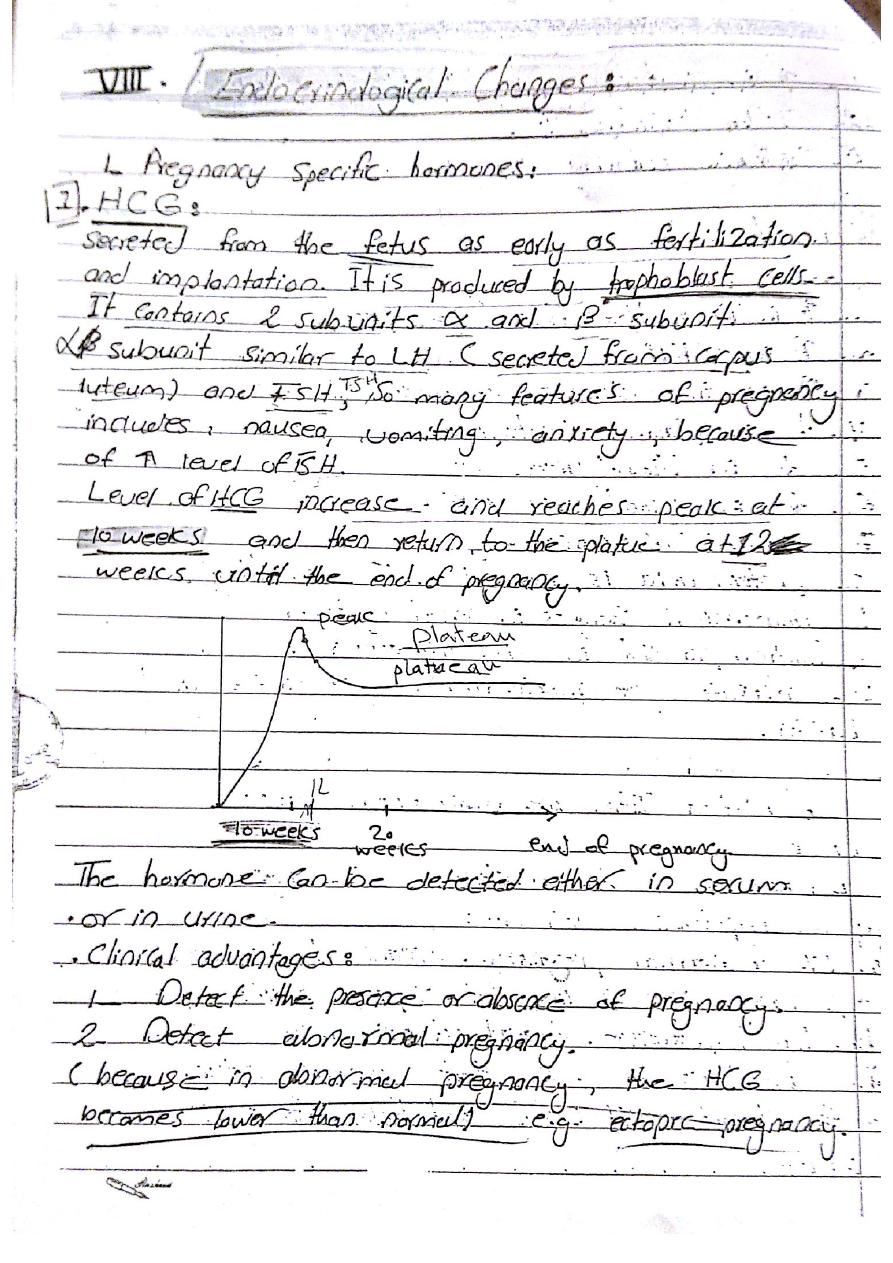 VIII. Endocrinological Changes:
1. Pregnancy specific hormones:
1. HCG:
secreted from the fetus as early as fertilization
and implantation. It is produced by trophoblast cells.
It contains 2 subunits α and β subunit.
αβ subunit similar to LH (secreted from corpus
luteum) and FSH, TSH, So many features of pregnancy
includes, nausea, vomiting, anxiety, because
of ↑ level of TSH.
Level of HCG increase and reaches peak at
10 weeks and then return to the platue at 12
weeks until the end of pregnancy.
peak
plateau
platueau
12
10 weeks
20
weeks
end of pregnancy
The hormone can be detected either in serum
or in urine.
. Clinical advantages:
1- Detect the presence or absence of pregnancy.
2- Detect abnormal pregnancy.
(because in abnormal pregnancy, the HCG
becomes lower than normal) e.g. ectopic pregnancy.